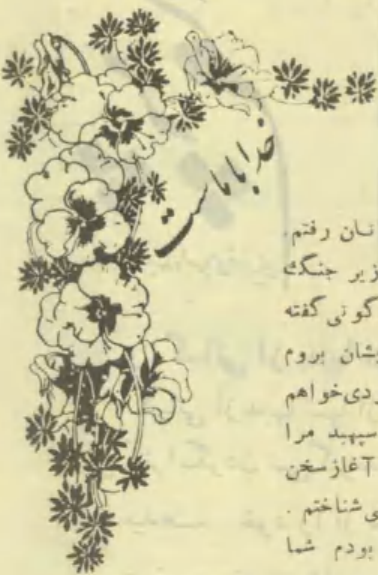 خدا با ماست
نان رفتم.
زیر جنگ
گونی گفته
بشان بروم
دی خواهم
سپهبد مرا
آغاز سخن
ی شناختم .
بودم شما